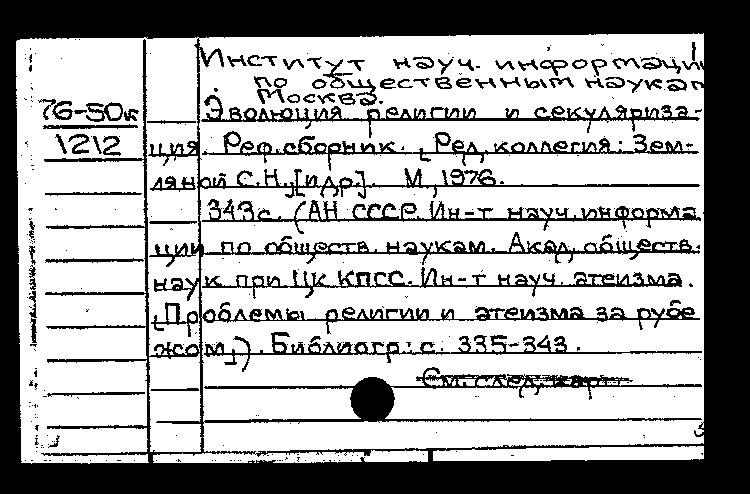 Институт науч. информаци
по общественным наукам
Москва.
76-50к
1212
Эволюция религии и секуляриза-
ция. Реф.сборник. [Ред.коллегия: Зем-
ляной С.Н.][и др.]. М.,1976.
343с. (АН СССР. Ин-т науч.информа
ции по обществ. наукам. Акад.обществ.
наук при Цк КПСС. Ин-т науч. атеизма.
[Проблемы религии и атеизма за рубе
жом]). Библиогр.: с. 335-343.
См. след. карт